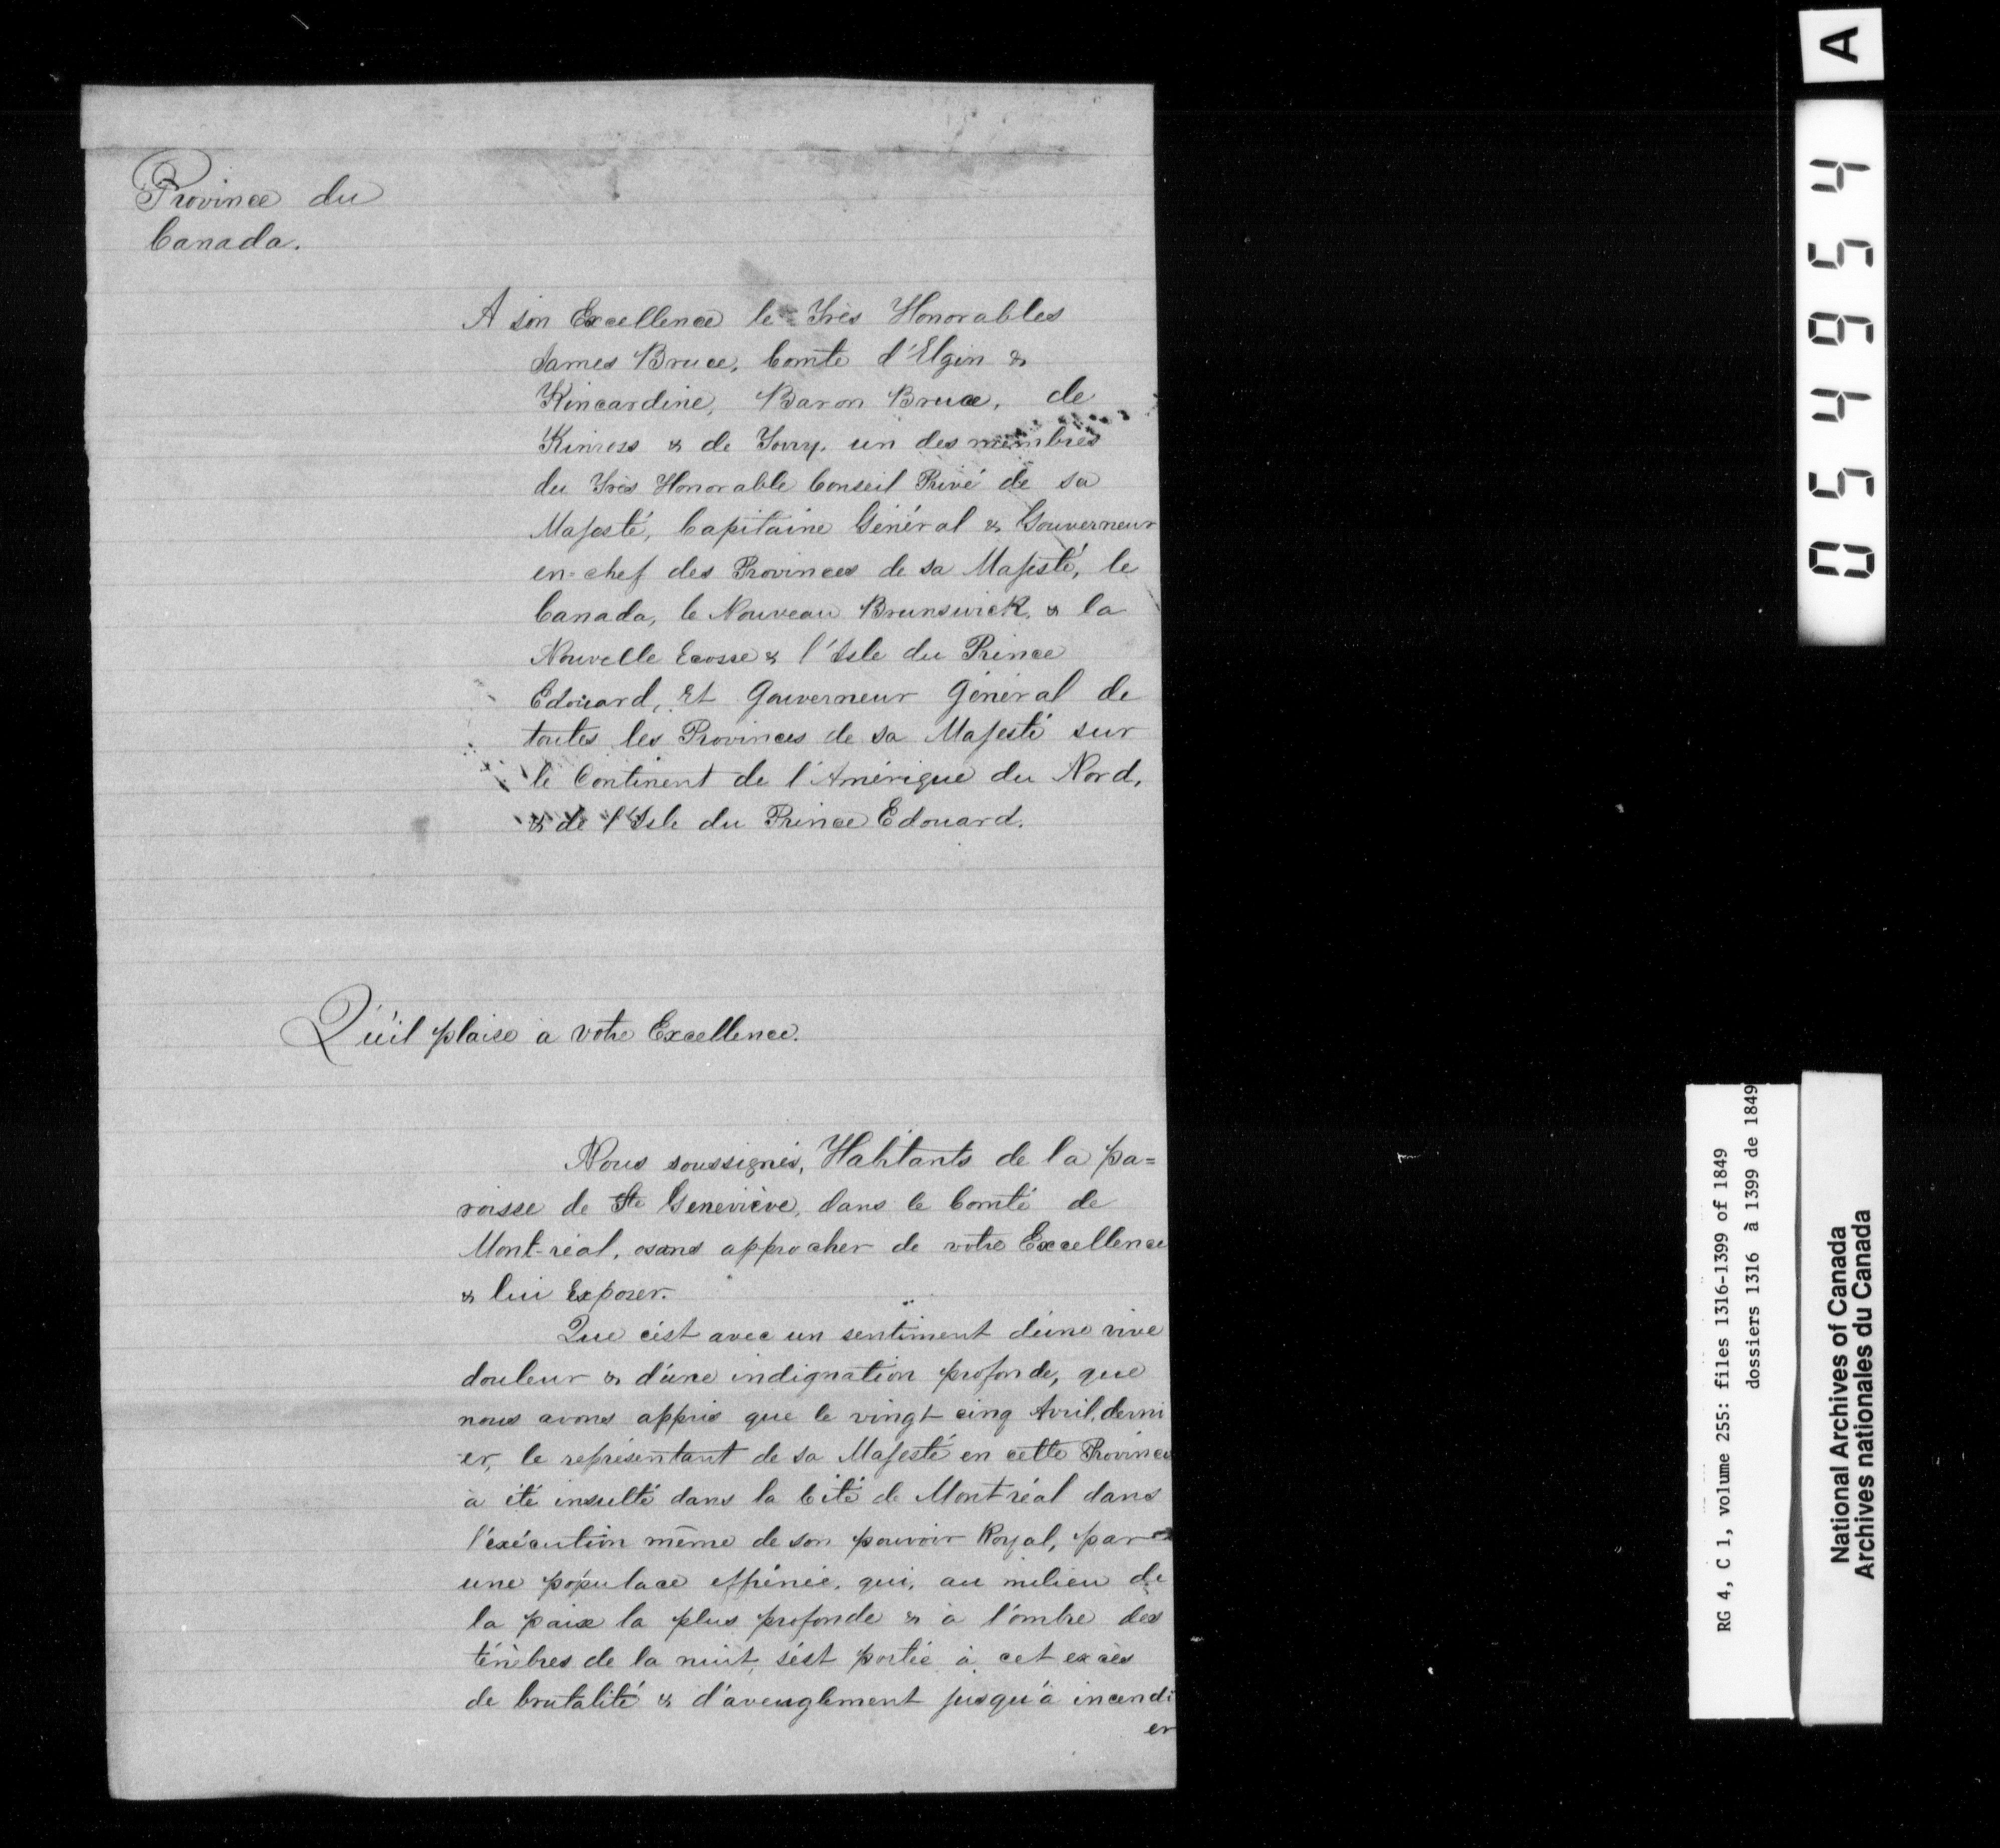 Province du
Canada.
A son Excellence le Très Honorables
James Bruce, Comte d'Elgin &
Kincardine, Baron Bruce, de
Kinross & de Torry, un des membres
du Très Honorable Conseil Privé de sa
Majesté, Capitaine Général & Gouverneur
en-chef des Provinces de sa Majesté, le
Canada, le Nouveau Brunswick, & la
Nouvelle Ecosse & l'Isle du Prince
Edouard, Et Gouverneur Général de
toutes les Provinces de sa Majesté sur
le Continent de l'Amérique du Nord,
& de l'Isle du Prince Edouard.
Qu'il plaise à votre Excellence.
Nous soussignés, Habitants de la pa=
roisse de Ste Geneviève, dans le Comté de
Mont-réal, osons approcher de votre Excellence
& lui Exposer.
Que c'est avec un sentiment d'une vive
douleur & d'une indignation profonde, que
nous avons appris que le vingt cinq Avril, derni
-er, le représentant de sa Majesté en cette Province
a été insulté dans la Cité de Montréal dans
l'exécution même de son pouvoir Royal, par
une populace effrénée, qui, au milieu de
la paix la plus profonde & à l'ombre des
ténèbres de la nuit, s'est portée à cet excès
de brutalité & d'aveuglement jusqu'à incendi
er
A
054954
RG 4, C 1, volume 255: files 1316-1399 of 1849
dossiers 1316 à 1399 de 1849
National Archives of Canada
Archives nationales du Canada